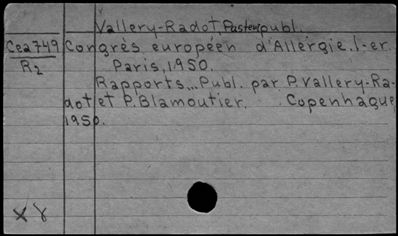 Vallery-Radot Pasteur publ.
Cea749 Congrès européen d'Allergie. 1-er.
R2 Paris, 1950.
Rapports... Publ. par P. Vallery-Ra-
dot et P. Blamoutier. Copenhague
1950.
X Y